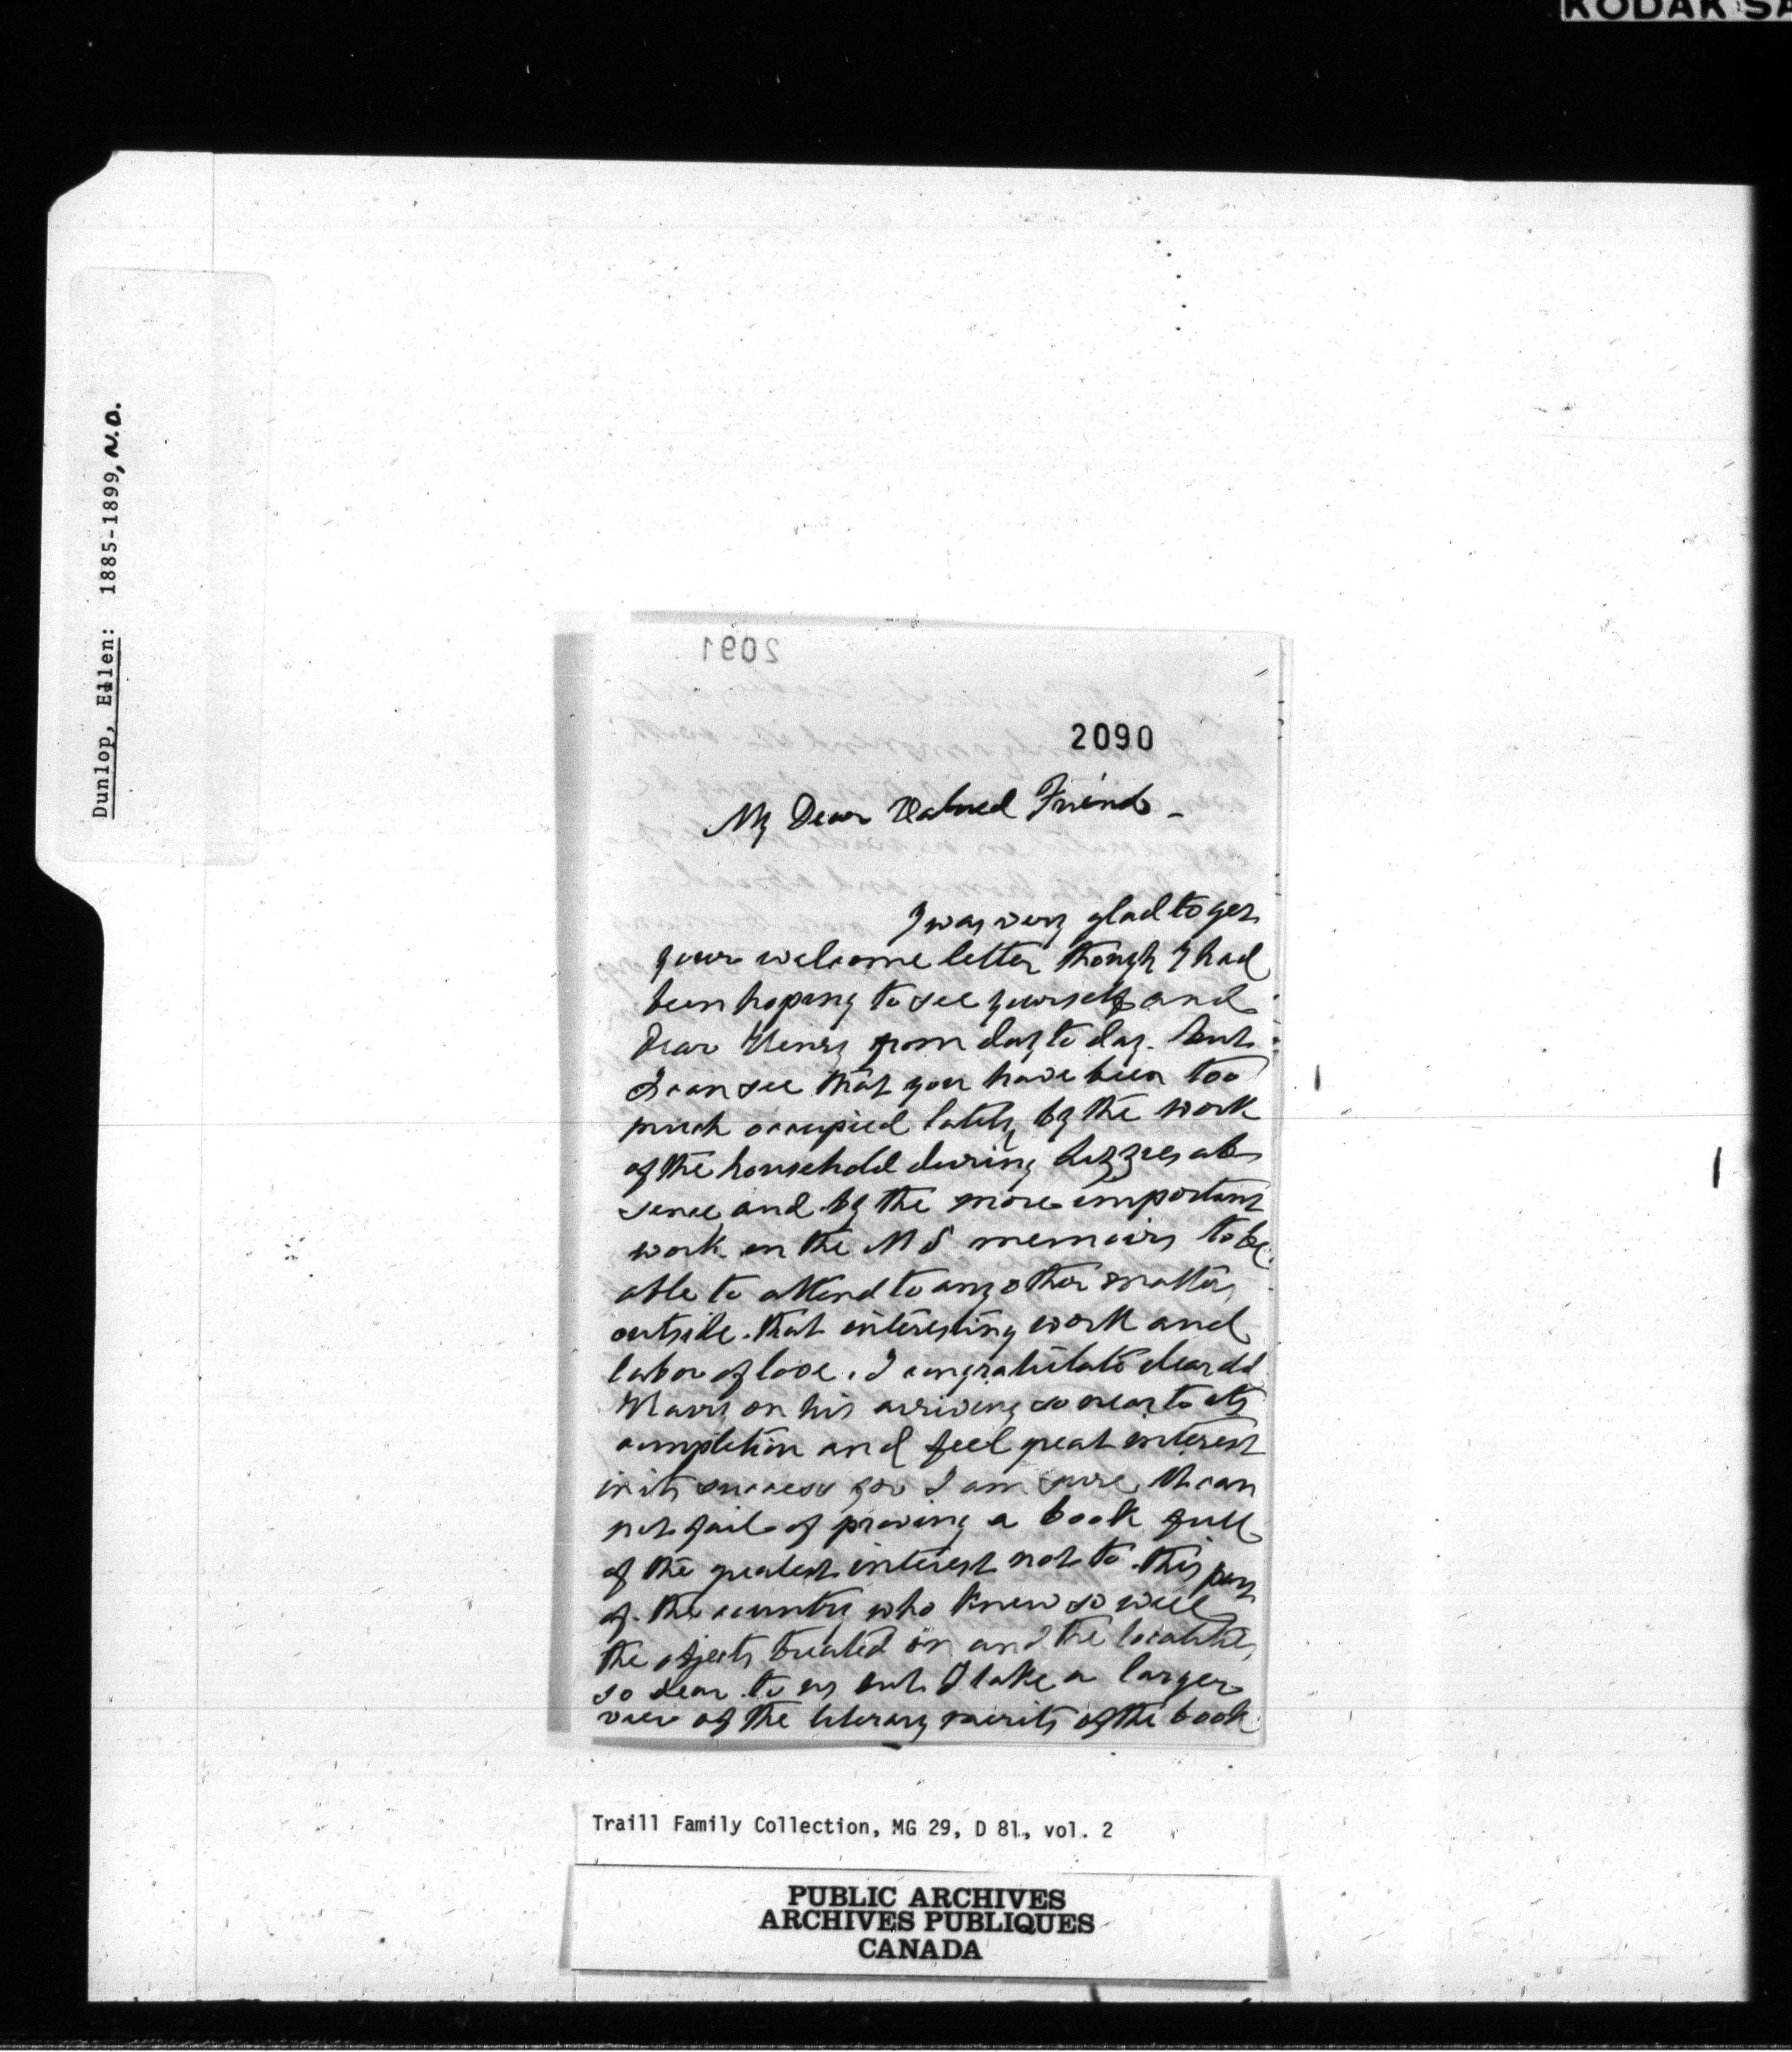 KODAK SA
Dunlop, Ellen: 1885-1899, N.D.
2091
2090
My Dear Valued Friend -
I was very glad to get
your welcome letter though I had
been hoping to see yourself and
dear Henry from day to day. but
I can see that you have been too
much occupied lately by the work
of the household during Lizzies ab
sence and by the more important
work on the MS memoirs to be
able to attend to any other matters
outside that interesting work and
labor of love. I congratulate dear old
on his arriving so near to its
completion and feel great interest
in its success for I am sure it can
not fail of proving a book full
of the greatest interest not to this part
of the country who knew so well
the objects treated on and the localities
so dear to us but I take a larger
view of the literary merits of the book
Traill Family Collection, MG 29, D 81, vol. 2
PUBLIC ARCHIVES
ARCHIVES PUBLIQUES
CANADA